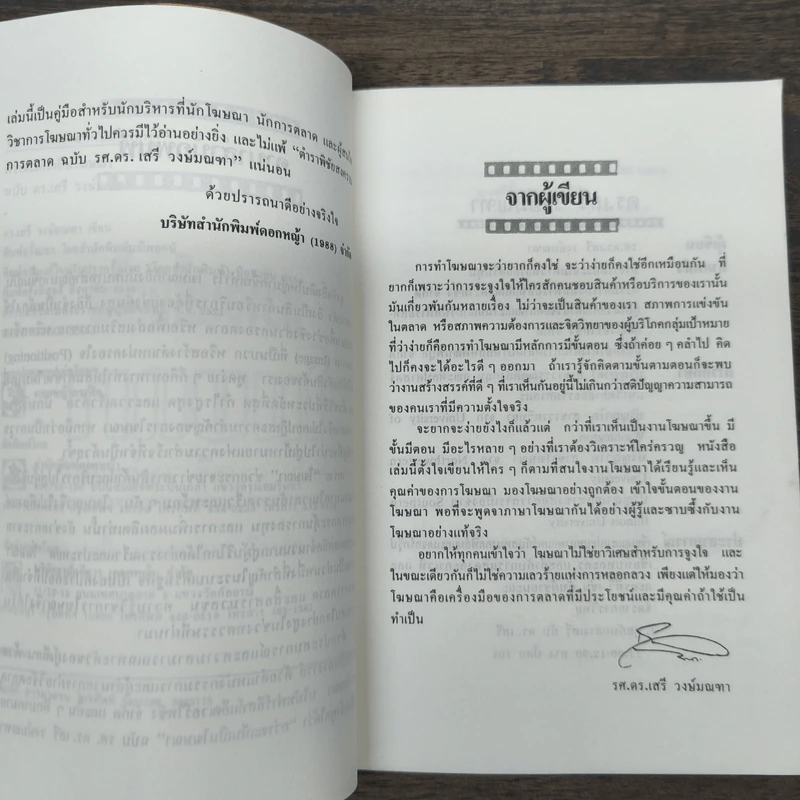 เล่มนี้เป็นคู่มือสำหรับนักบริหารที่นักโฆษณา นักการตลาด และผู้สนใจ
วิชาการโฆษณาทั่วไปควรมีไว้อ่านอย่างยิ่ง และไม่แพ้ “ตำราพิชัยสงคราม
การตลาด ฉบับ รศ.ดร. เสรี วงษ์มณฑา” แน่นอน
ด้วยปรารถนาดีอย่างจริงใจ
บริษัทสำนักพิมพ์ดอกหญ้า (1988) จำกัด
จากผู้เขียน
การทำโฆษณาจะว่ายากก็คงใช่ จะว่าง่ายก็คงใช่อีกเหมือนกัน ที่
ยากก็เพราะว่าการจะจูงใจให้ใครสักคนชอบสินค้าหรือบริการของเรานั้น
มันเกี่ยวพันกันหลายเรื่อง ไม่ว่าจะเป็นสินค้าของเรา สภาพการแข่งขัน
ในตลาด หรือสภาพความต้องการและจิตวิทยาของผู้บริโภคกลุ่มเป้าหมาย
ที่ว่าง่ายก็คือการทำโฆษณามีหลักการมีขั้นตอน ซึ่งถ้าค่อย ๆ คลำไป คิด
ไปก็คงจะได้อะไรดี ๆ ออกมา ถ้าเรารู้จักคิดตามขั้นตามตอนก็จะพบ
ว่างานสร้างสรรค์ที่ดี ๆ ที่เราเห็นกันอยู่นี้ไม่เกินกว่าสติปัญญาความสามารถ
ของคนเราที่มีความตั้งใจจริง
จะยากจะง่ายยังไงก็แล้วแต่ กว่าที่เราเห็นเป็นงานโฆษณาขึ้น มี
ขั้นมีตอน มีอะไรหลาย ๆ อย่างที่เราต้องวิเคราะห์ใคร่ครวญ หนังสือ
เล่มนี้ตั้งใจเขียนให้ใคร ๆ ก็ตามที่สนใจงานโฆษณาได้เรียนรู้และเห็น
คุณค่าของการโฆษณา มองโฆษณาอย่างถูกต้อง เข้าใจขั้นตอนของงาน
โฆษณา พอที่จะพูดจาภาษาโฆษณากันได้อย่างผู้รู้และซาบซึ้งกับงาน
โฆษณาอย่างแท้จริง
อยากให้ทุกคนเข้าใจว่า โฆษณาไม่ใช่ยาวิเศษสำหรับการจูงใจ และ
ในขณะเดียวกันก็ไม่ใช่ความเลวร้ายแห่งการหลอกลวง เพียงแต่ให้มองว่า
โฆษณาคือเครื่องมือของการตลาดที่มีประโยชน์และมีคุณค่าถ้าใช้เป็น
ทำเป็น
รศ.ดร.เสรี วงษ์มณฑา